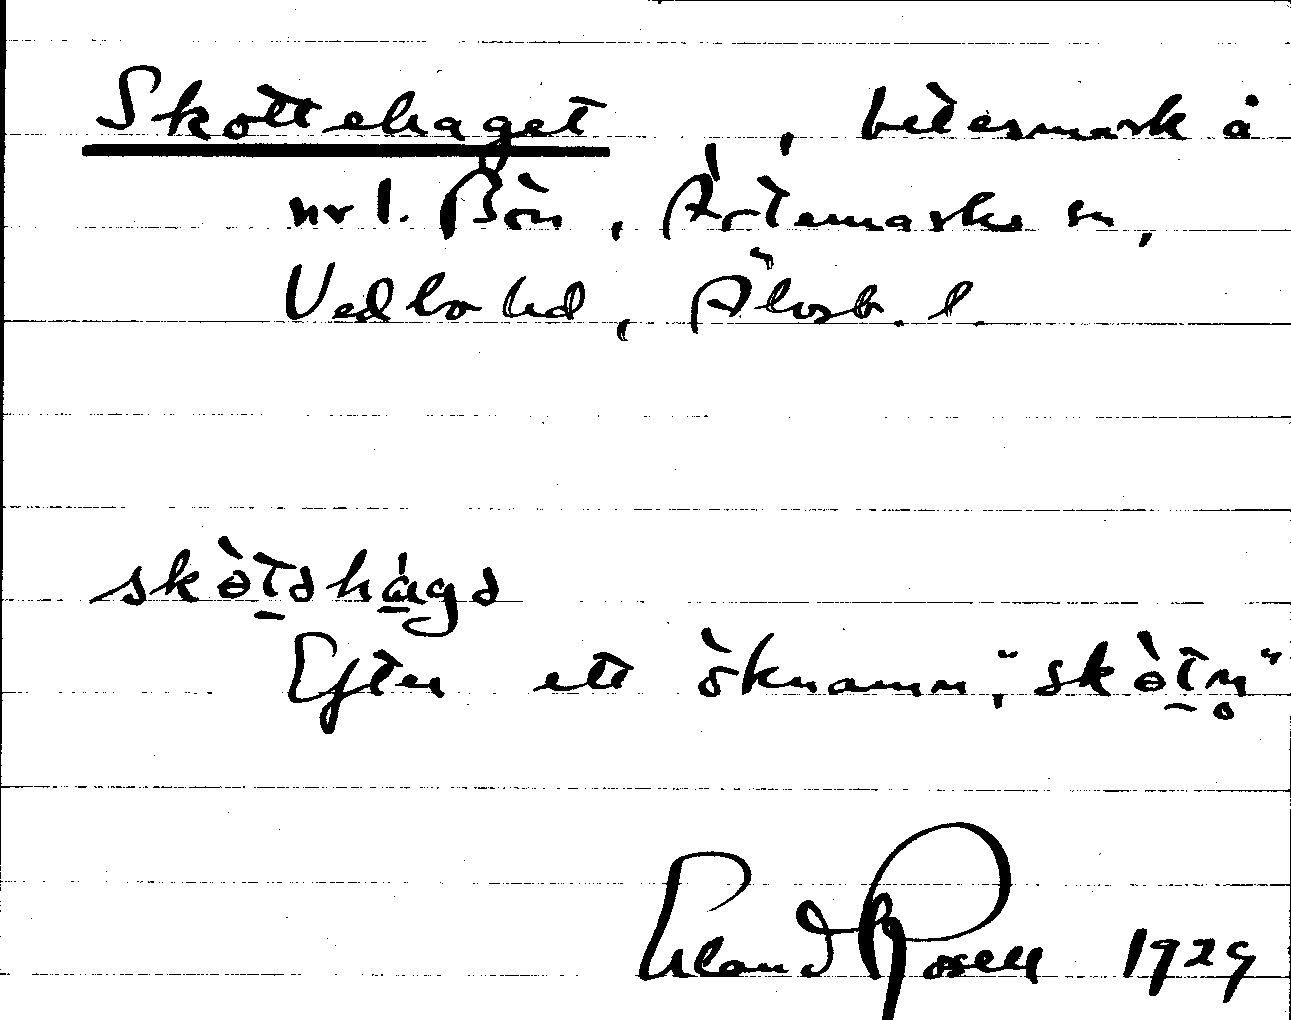 Skottehaget, betesmark å
nr 1. Bön, Ärtemarks sn,
Vedbo hd, Älvsb. l.
skòt̠əhág̠ə
Efter ett öknamn, "skòt̠n̥"
Erland Rosell 1929